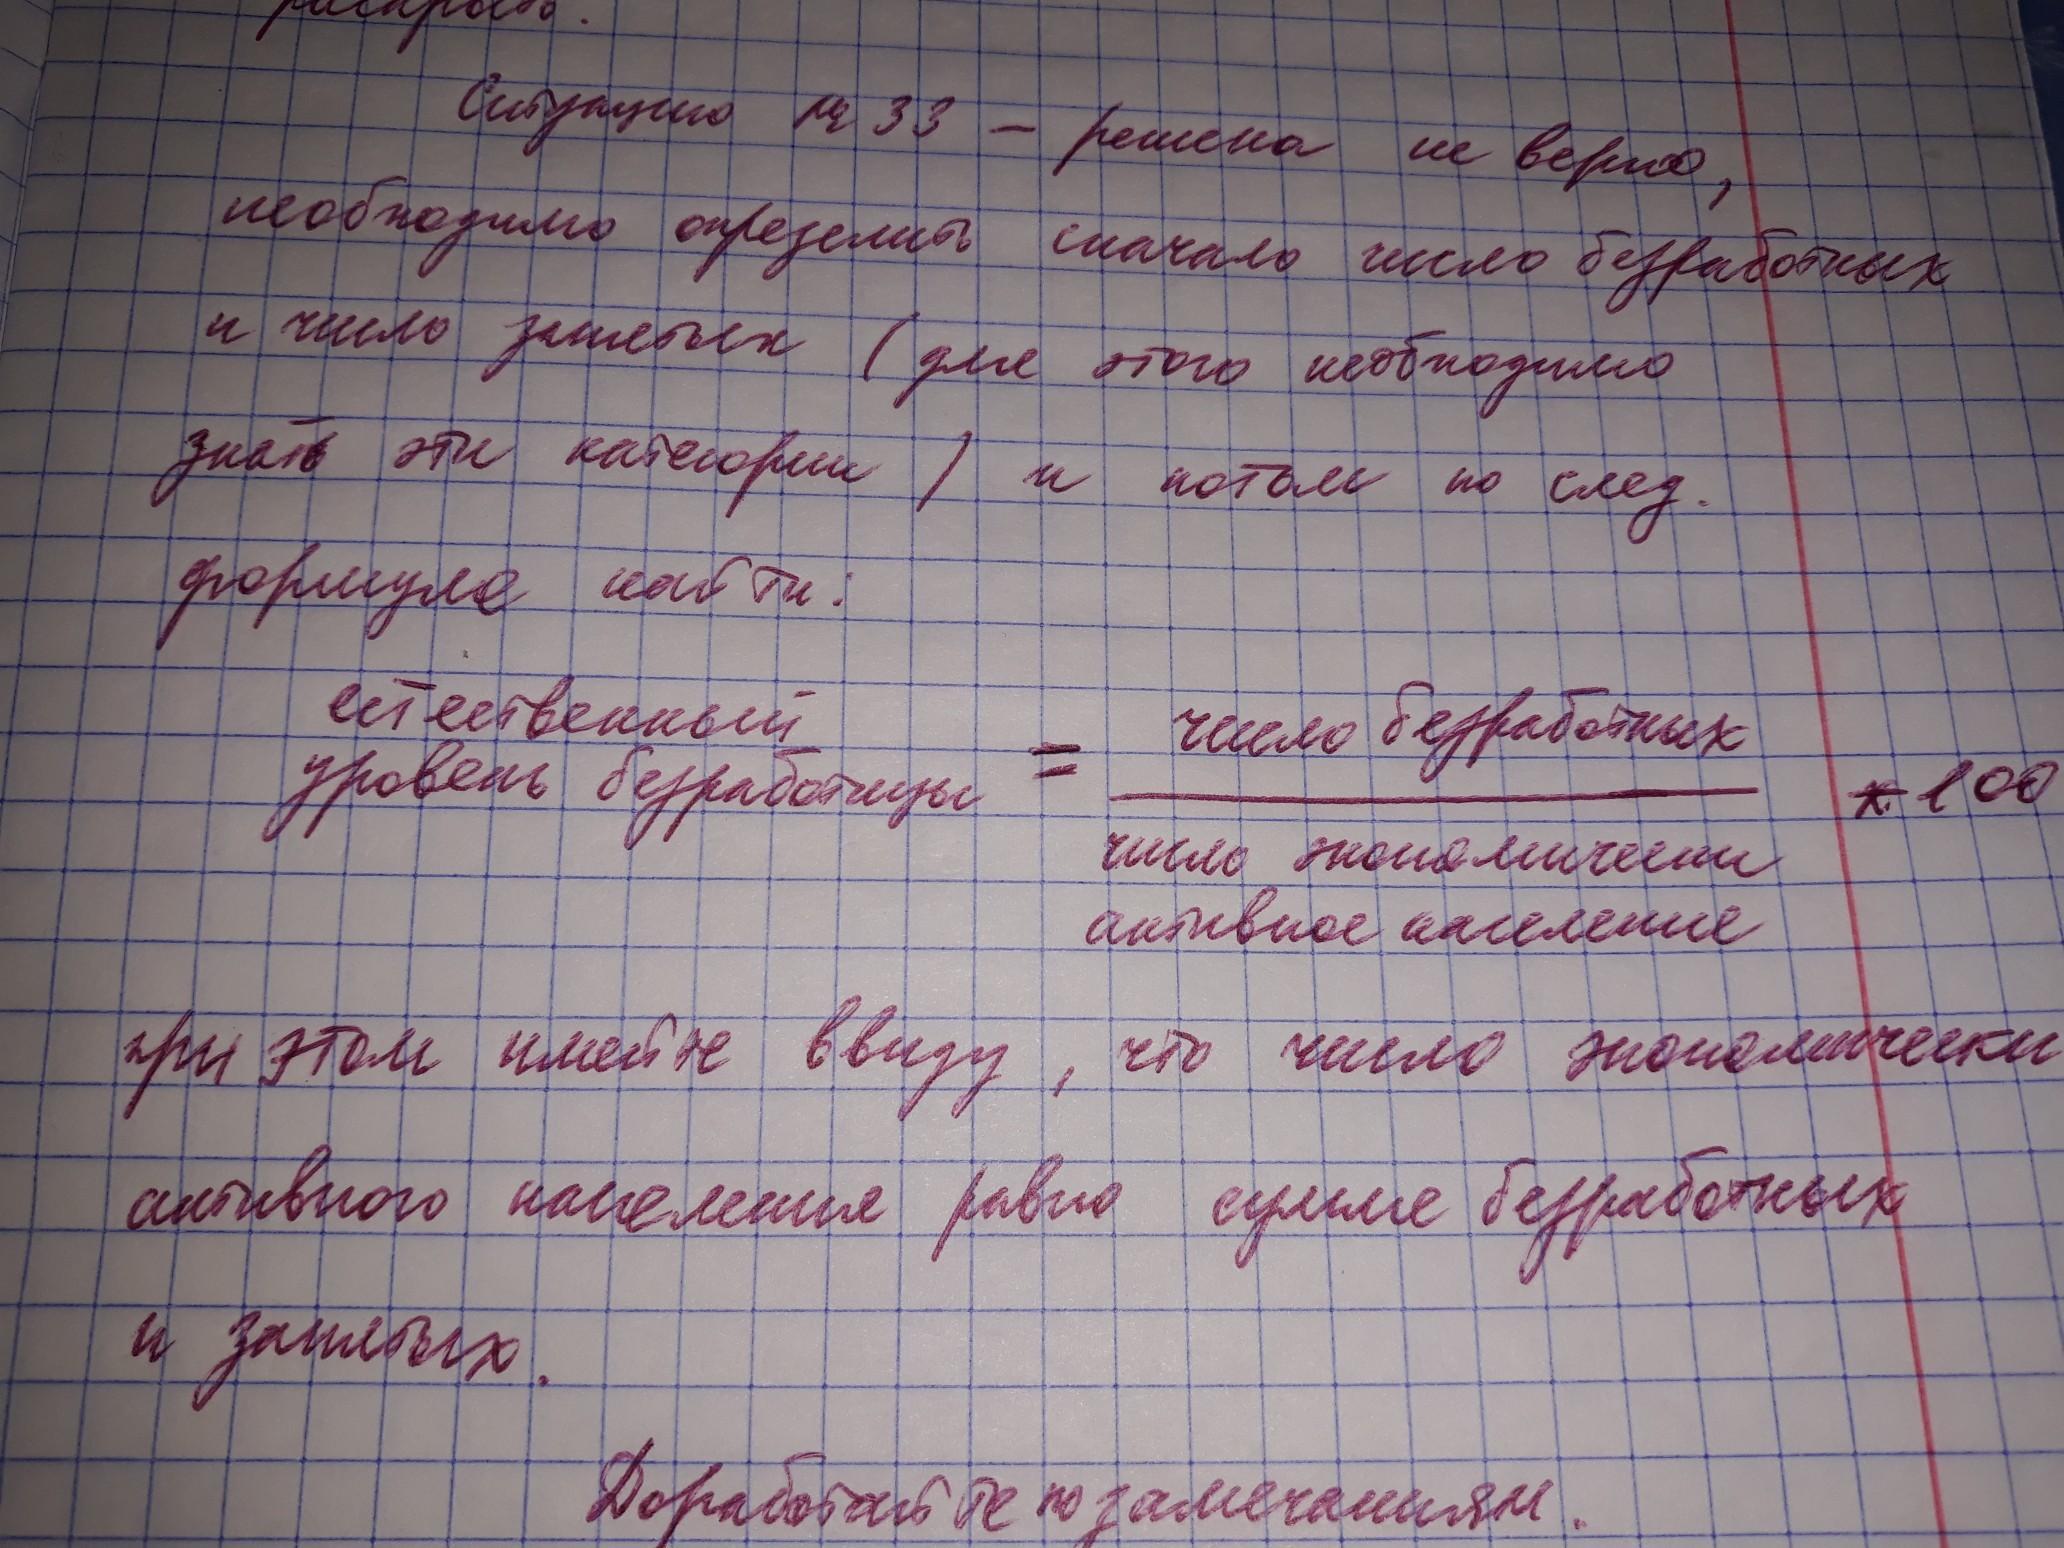 раскрыть.
Ситуацию № 33 – решена не верно,
необходимо определить сначало число безработных
и число занятых (для этого необходимо
знать эти категории) и потом по след.
формуле найти:
естественный
уровень безработицы = число безработных * 100
число экономически
активное население
при этом имейте ввиду, что число экономически
активного населения равно сумме безработных
и занятых.
Доработайте по замечаниям.